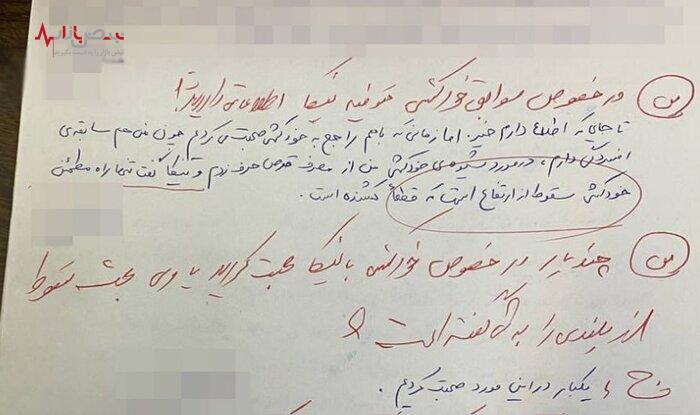 نبض بازار
نبض بازار را به دست بگیرید
س) در خصوص سوابق خودکشی متوفیه نیکا اطلاعاتی دارید؟
تا جایی که اطلاع دارم خیر. اما زمانی که باهم راجع به خودکشی صحبت می‌کردیم چون من هم سابقه‌ی
افسردگی دارم، در مورد شیوه‌ی خودکشی من از مصرف قرص حرف زدم و نیکا گفت تنها راه مطمئن
خودکشی سقوط از ارتفاع است که قطعاً کشنده است.
س) چند بار در خصوص خودکشی با نیکا صحبت کردید یا وی بحث سقوط
از بلندی را به گفته است؟
ج) یکبار در این مورد صحبت کردیم.